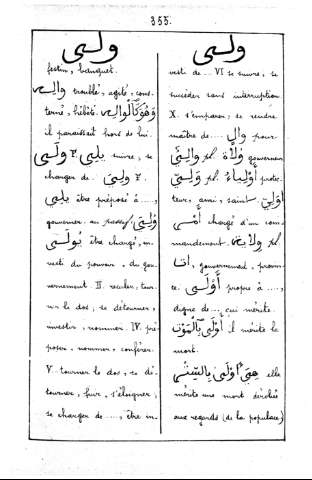 355.
ولى
festin, banquet.
والِه troublé, agité, cons-
terné, hébété. وَهُوَ كَالْوالِهِ
il paraissait hors de lui.
ولى F. يلى suivre, se
charger de. وَلِىَ F.
يلى être préposé à ...,
gouverner, au passif وُلِىَ
يُولَى être chargé, in-
vesti du pouvoir, du gou-
vernement II. reculer, tour-
ner le dos, se détourner,
investir, nommer IV. pré-
poser, nommer, conférer.
V. tourner le dos, se dé-
tourner, fuir, s'éloigner,
se charger de ..., être in-
ولى
vesti de ... VI se suivre, se
succéder sans interruption
X. s'emparer, se rendre
maître de.... والٍ pour
والِى pl. وُلاةٌ gouverneur
وَلِىّ pl. أَوْلِياءُ protec-
teur, ami, saint
chargé d'un com-
mandement. ولاية pl.
ات, gouvernement, provin-
ce. أَوْلَى propre à ...,
digne de..., qui mérite.
أَوْلَى بِالْمَوْت il mérite la
mort.
هِىَ أَوْلَى بِالسِتْر elle
mérite une mort dérobée
aux regards (de la populace)